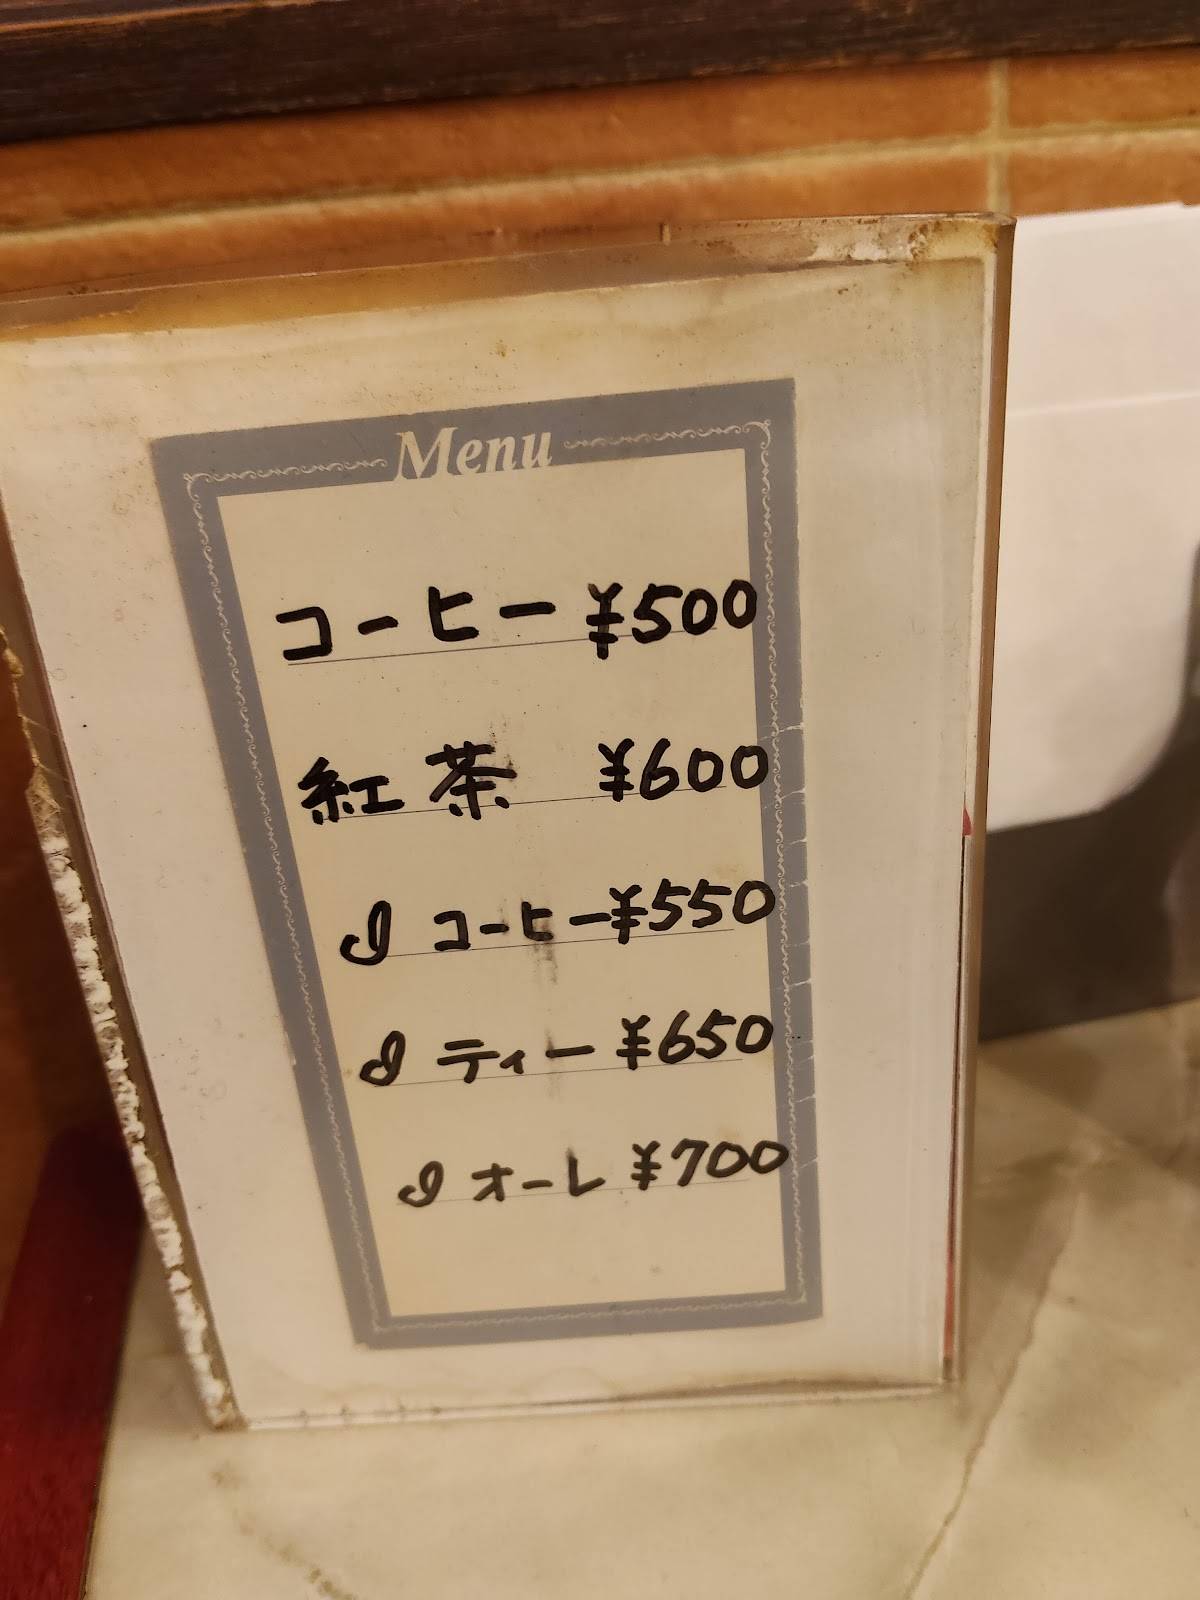 Menu
コーヒー ¥500
紅茶 ¥600
コーヒー ¥550
ティー ¥650
オーレ ¥700